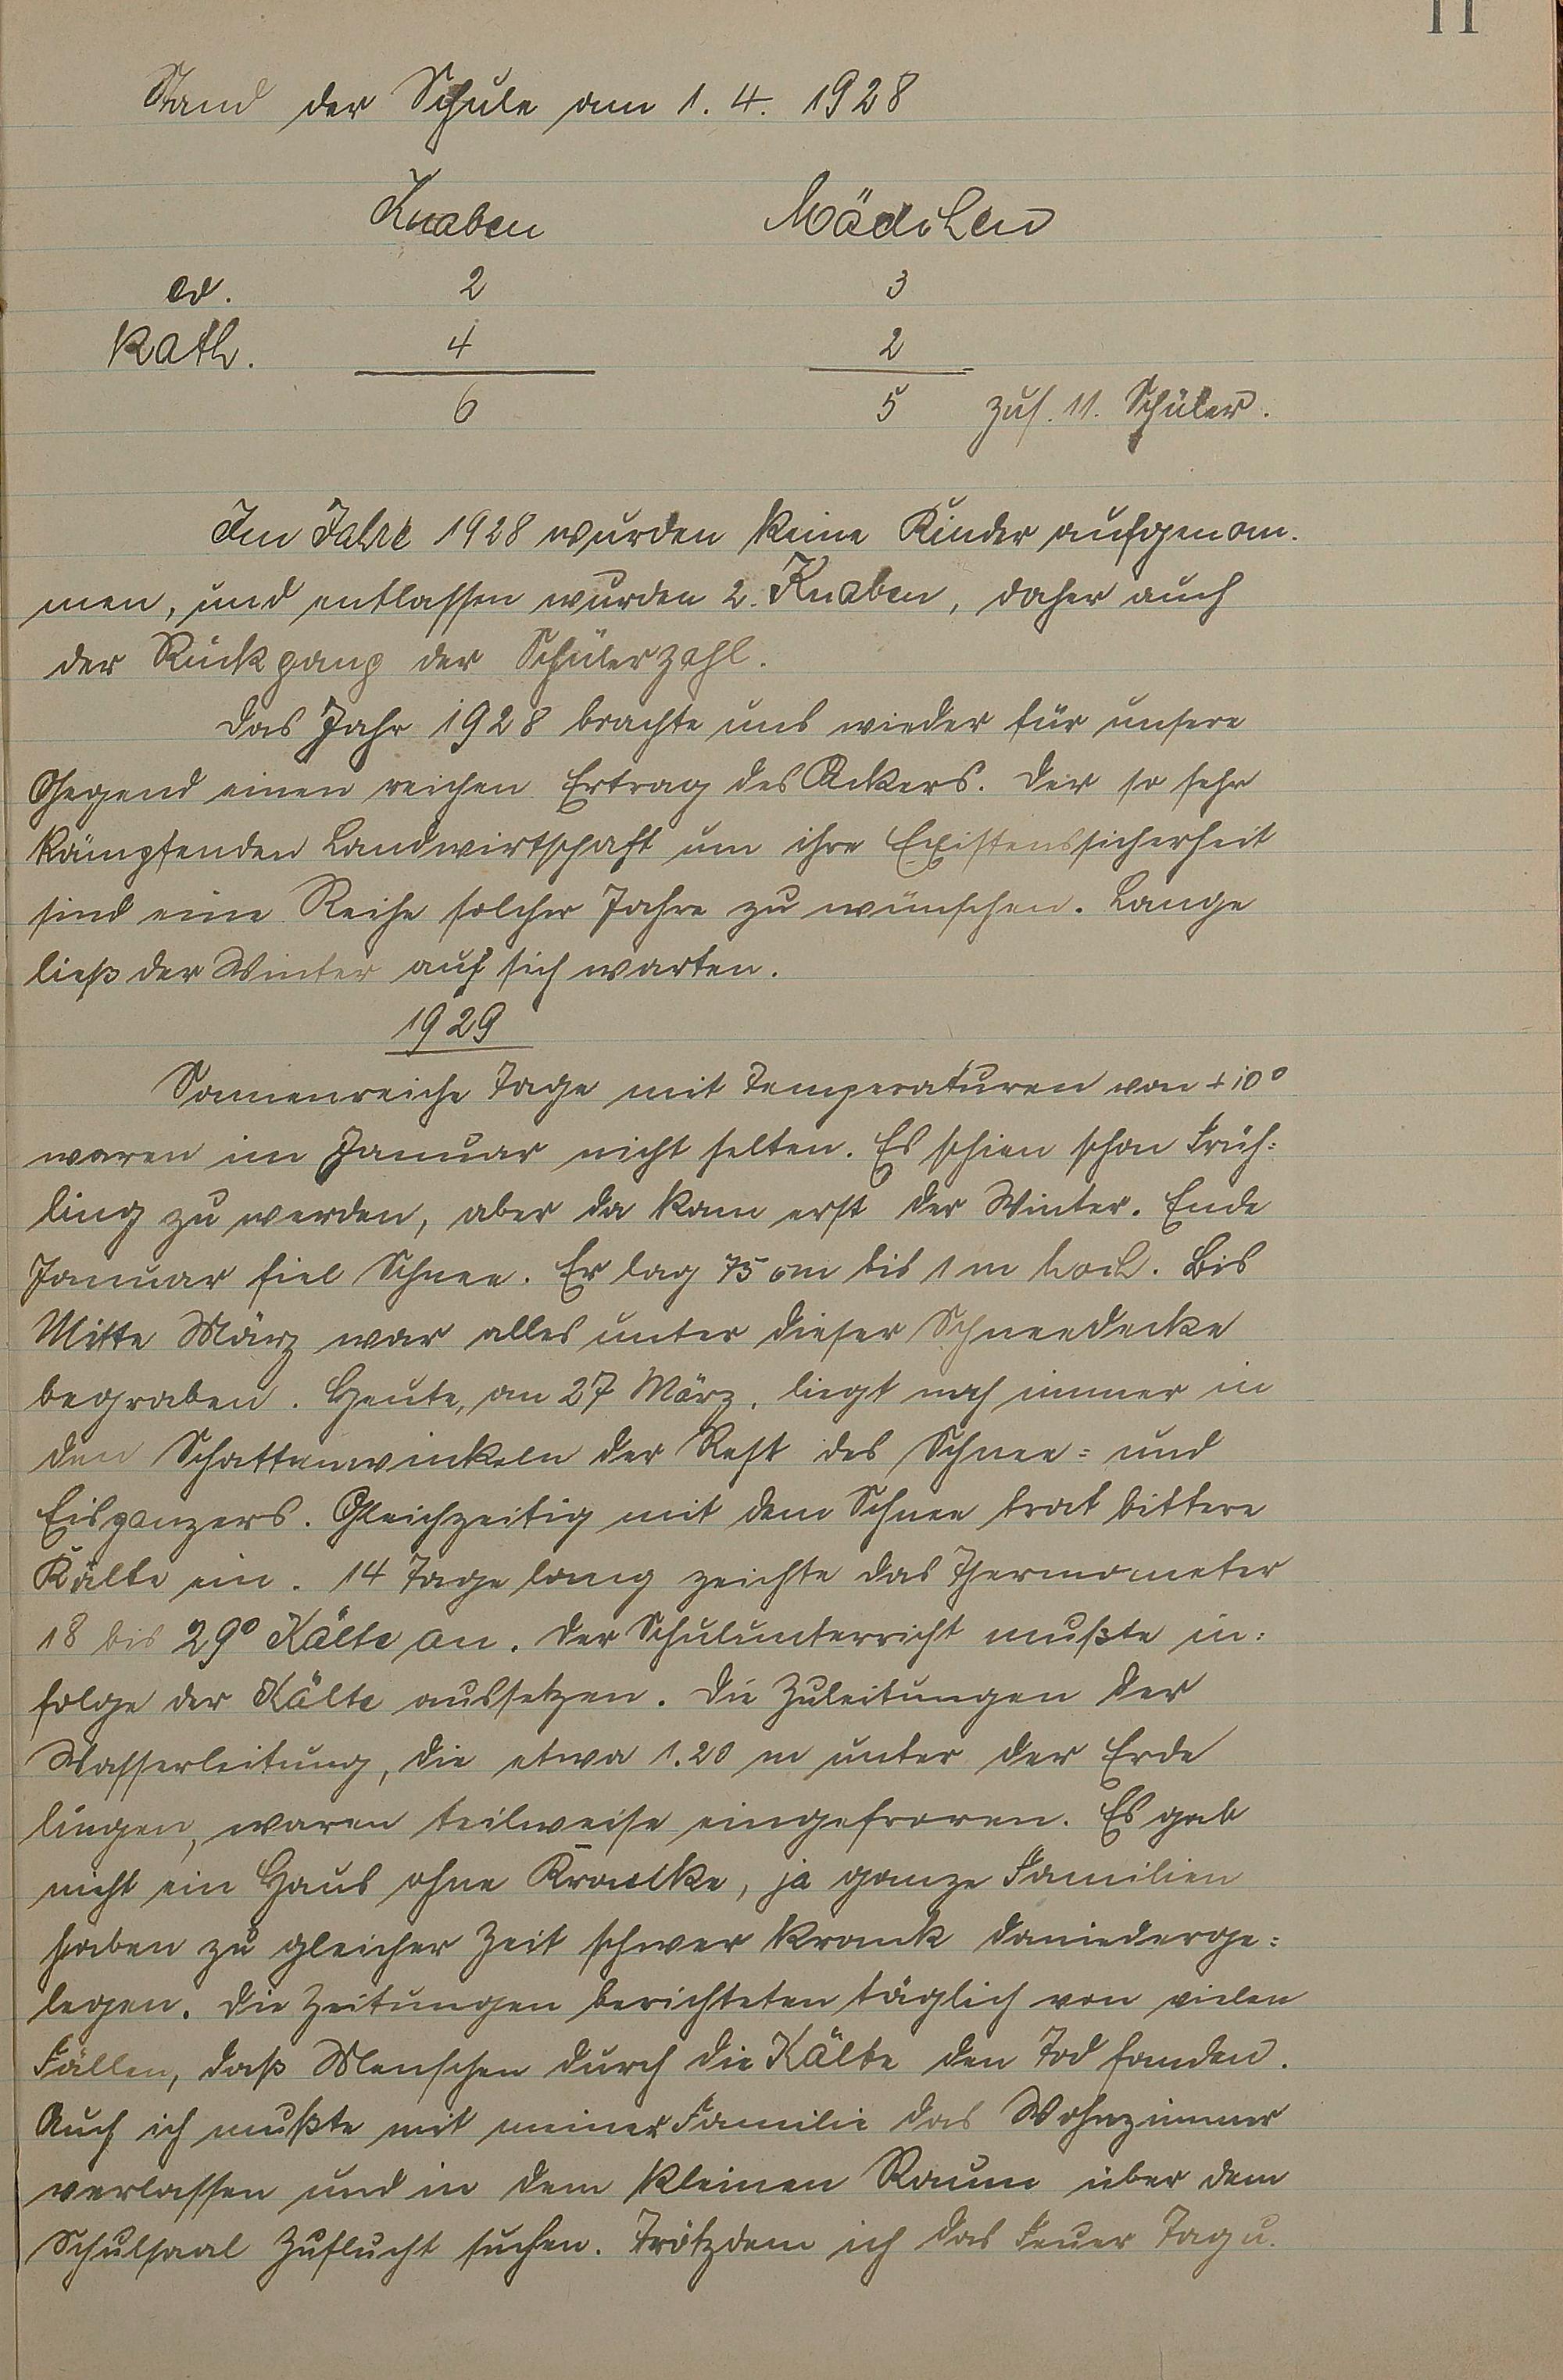 11
Stand der Schule am 1. 4. 1928
Knaben Mädchen
ev. 2 3
Kath. 4 2
6 5 zus. 11. Schüler.
Im Jahre 1928 wurden keine Kinder aufgenom-
men, und entlassen wurden 2. Knaben, daher auch
der Rückgang der Schülerzahl.
Das Jahr 1928 brachte uns wieder für unsere
Gegend einen reichen Ertrag des Ackers. Der so sehr
kämpfenden Landwirtschaft um ihre Existenssicherheit
sind eine Reihe solcher Jahre zu wünschen. Lange
ließ der Winter auf sich warten.
1929
Sonnenreiche Tage mit Temperaturen von +10°
waren im Januar nicht selten. Es schien schon Früh=
ling zu werden, aber da kam erst der Winter. Ende
Januar fiel Schnee. Er lag 75 cm bis 1 m hoch. Bis
Mitte März war alles unter dieser Schneedecke
begraben. Heute, am 27 März, liegt noch immer in
den Schattenwinkeln der Rest des Schnee= und
Eispanzers. Gleichzeitig mit dem Schnee trat bittere
Kälte ein. 14 Tage lang zeichte das Thermometer
18 bis 29° Kälte an. Der Schulunterricht mußte in=
folge der Kälte aussetzen. Die Zuleitungen der
Wasserleitung, die etwa 1.20 m unter der Erde
liegen, waren teilweise eingefroren. Es gab
nicht ein Haus ohne Kranke, ja ganze Familien
haben zu gleicher Zeit schwer krank daniederge=
legen. Die Zeitungen berichteten täglich von vielen
Fällen, daß Menschen durch die Kälte den Tod fanden.
Auch ich mußte mit meiner Familie das Wohnzimmer
verlassen und in dem kleinen Raum über dem
Schulsaal Zuflucht suchen. Trotzdem ich das Feuer Tag u.